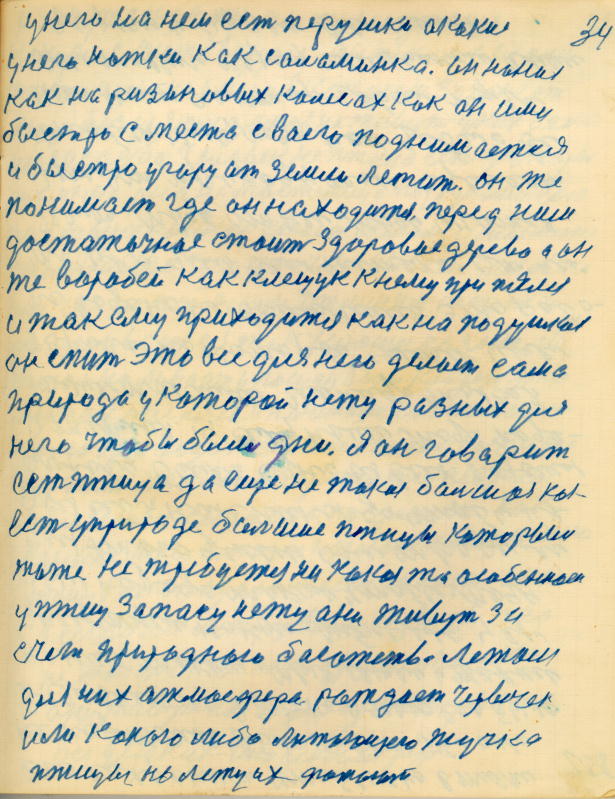 34
у него на нем ест перушки а какие
у него ножки как саламинка. он на них
как на ризиновых колесах как он ими
быстро с места сваего поднимается
и быстро угару от земли летит. он же
понимает где он находится перед ним
достаточное стоит здоровые дерево а он
же варабей как к нему
и так ему приходится как на подушках
он спит Это все для него делает сама
природа у каторой нету разных для
него чтобы были дни. Я он говарит
ест птица да еще не такая балшая как
ест у природе балшие птицы каторым
тоже не требуется ни какая та особенное
у птиц Запасу нету ани живут за
счет природного багатства. Летом
для них атмосфера раждает червячек
или какого либо летающего жучка
птицы на лету их